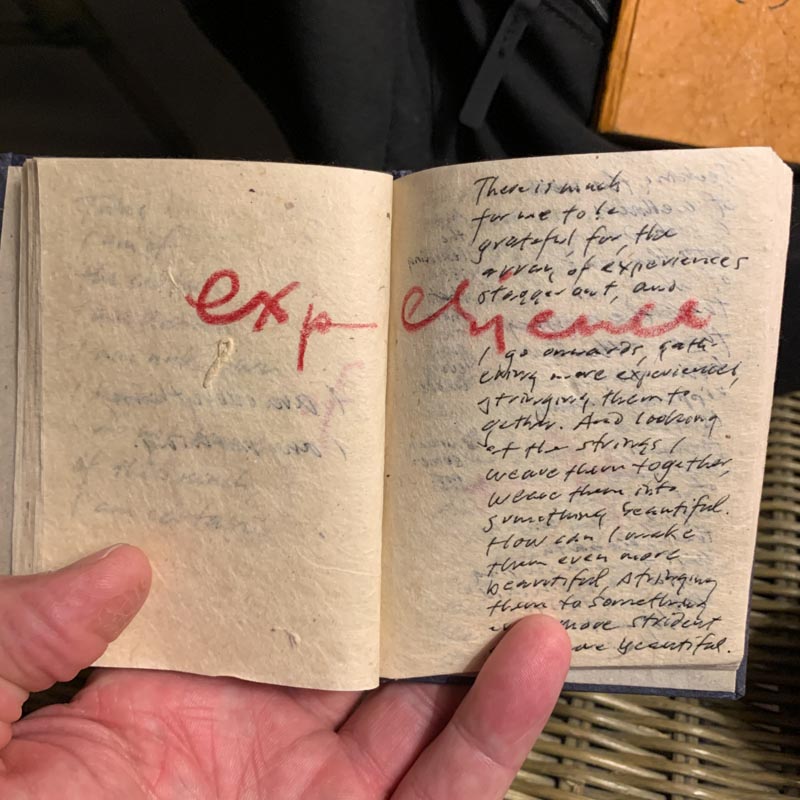 exp-erience
There is much
for me to be
grateful for, the
array of experiences
stagger out, and
I go onwards, gath-
ering more experiences,
stringing them to
gether. And looking
at the strings I
weave them together,
weave them into
something beautiful.
How can I make
them even more
beautiful, stringing
them to something
more strident
beautiful.